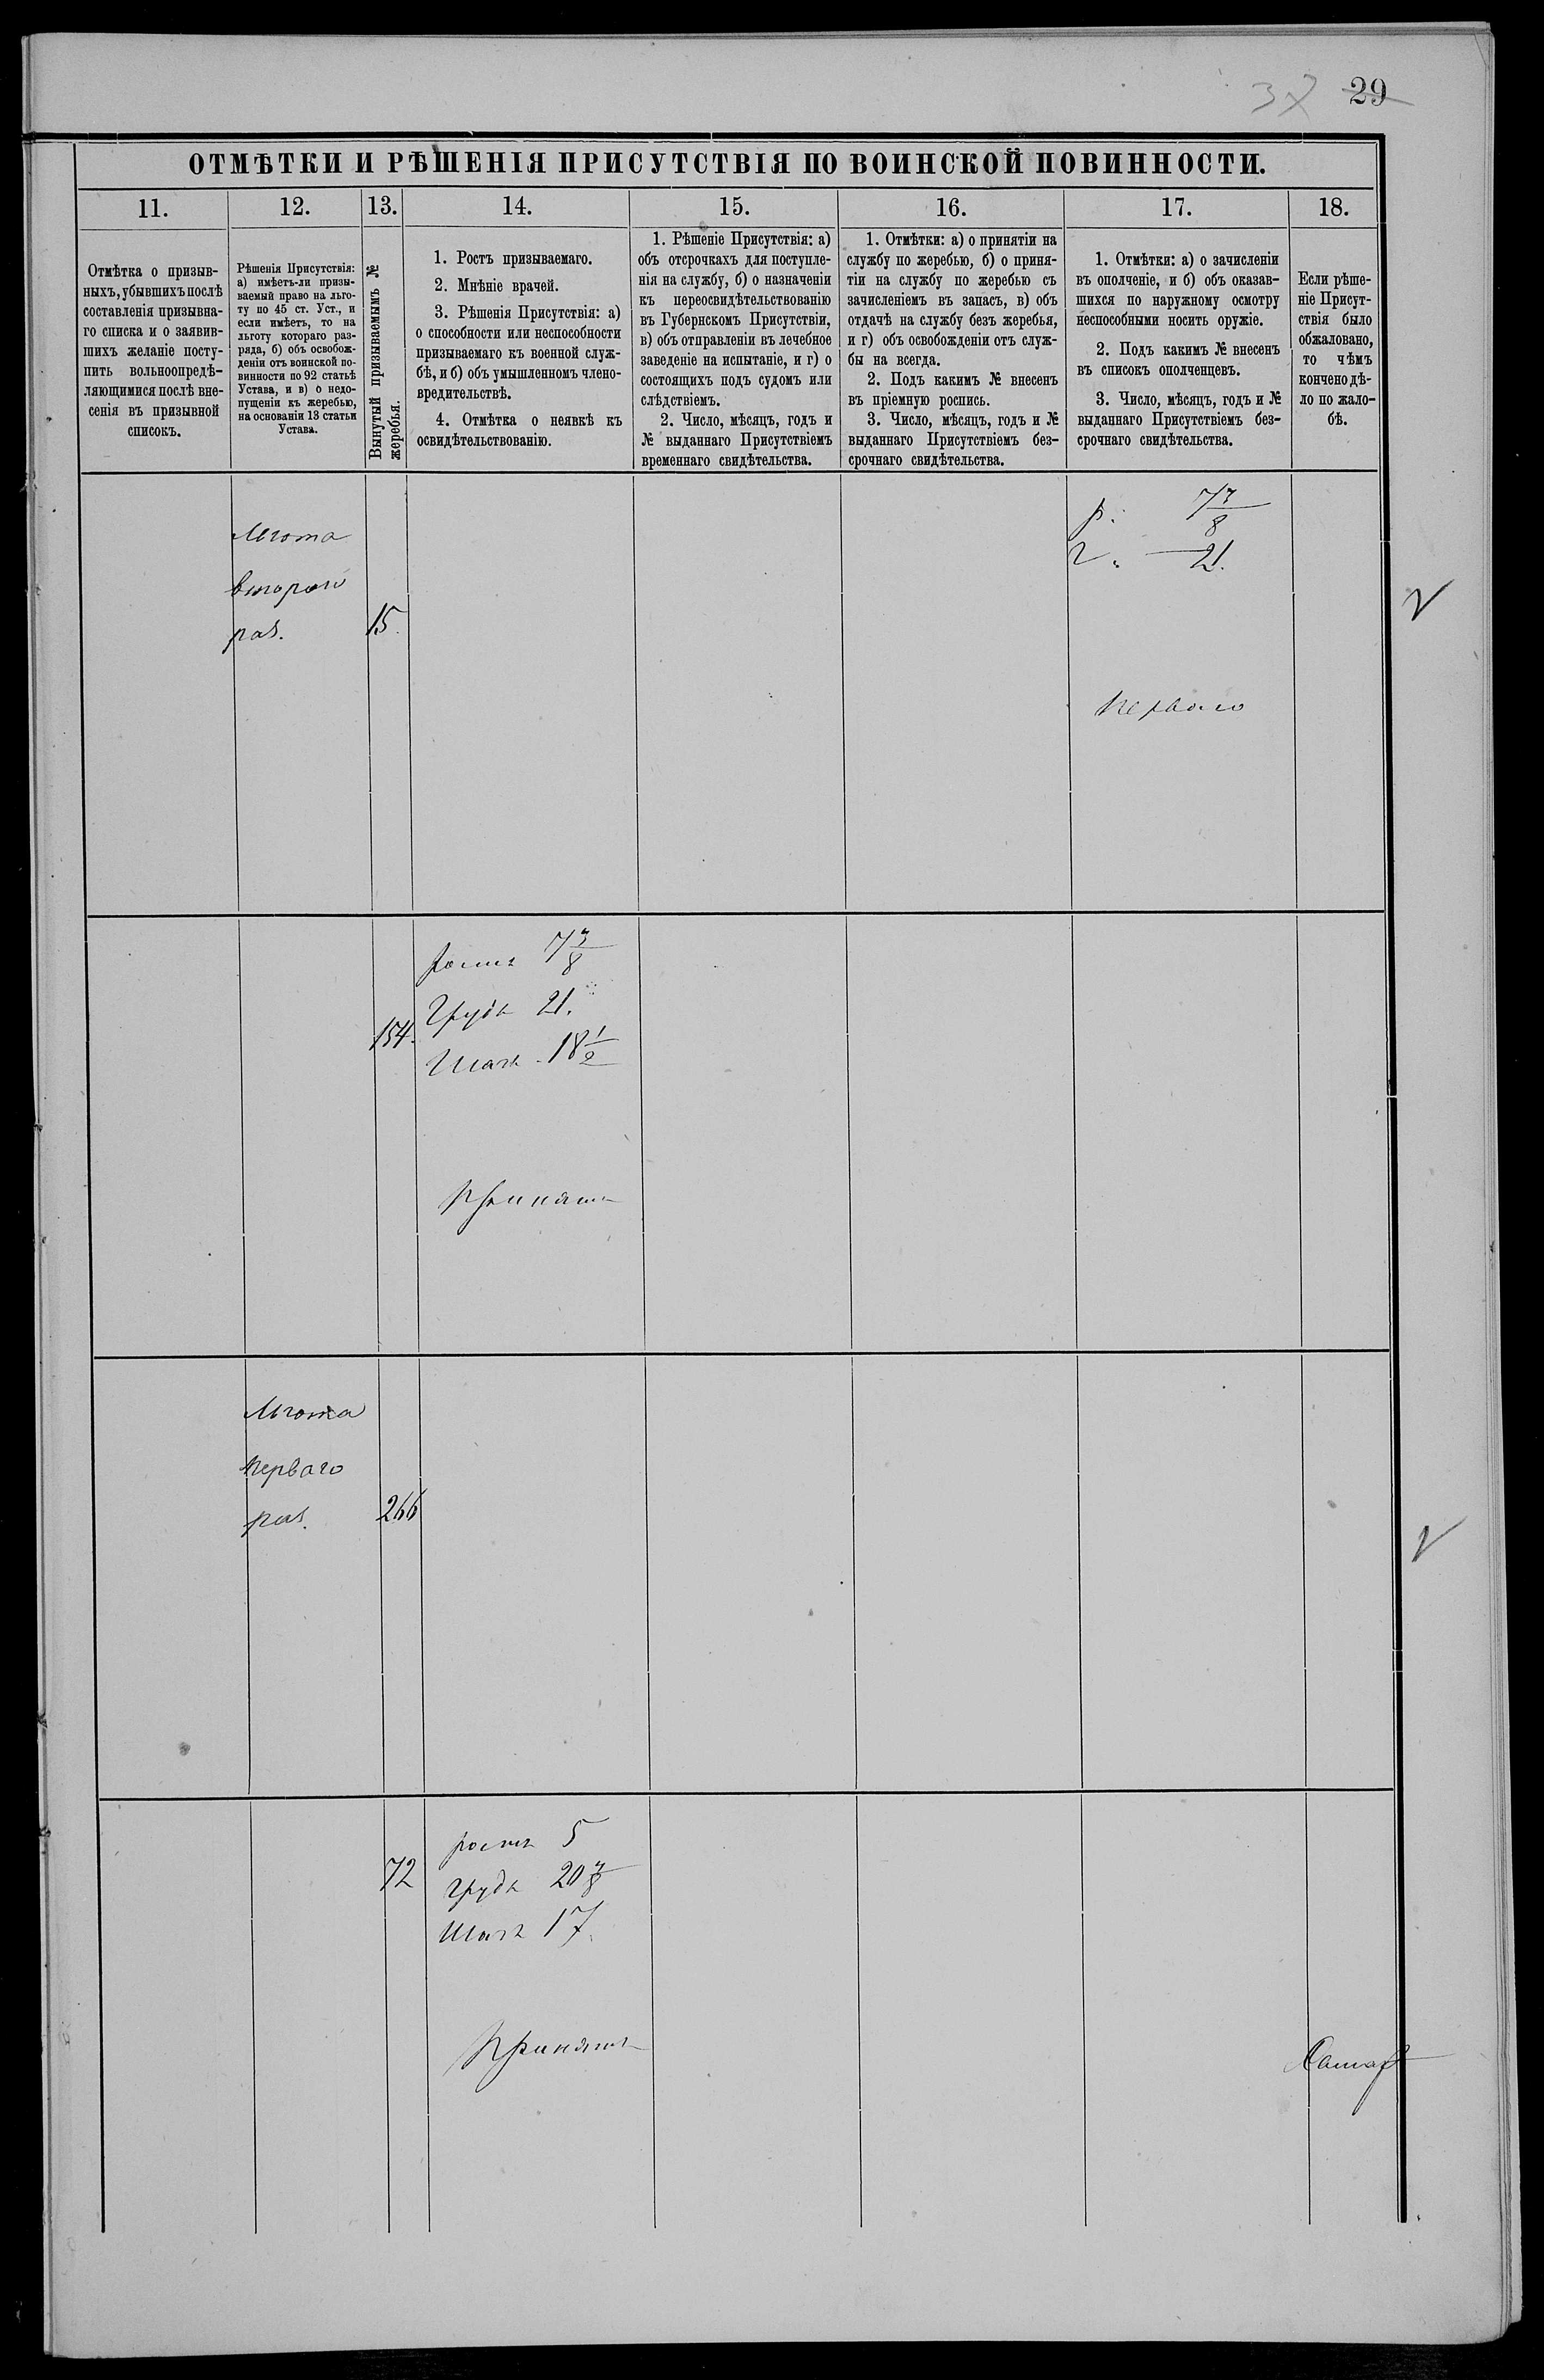 29
ОТМѢТКИ И РѢШЕНІЯ ПРИСУТСТВІЯ ПО ВОИНСКОЙ ПОВИННОСТИ.
11.
Отмѣтка о призыв-
ныхъ, убывшихъ послѣ
составленія призывна-
го списка и о заявив-
шихъ желаніе посту-
пить вольноопредѣ-
ляющимися послѣ вне-
сенія въ призывной
списокъ.
12.
Рѣшенія Присутствія:
а) имѣетъ-ли призы-
ваемый право на льго-
ту по 45 ст. Уст., и
если имѣетъ, то на
льготу котораго раз-
ряда, б) объ освобож-
деніи отъ воинской по-
винности по 92 статьѣ
Устава, и в) о недо-
пущеніи къ жеребью,
на основаніи 13 статьи
Устава.
13.
Вынутый призываемымъ №
жеребья.
14.
1. Ростъ призываемаго.
2. Мнѣніе врачей.
3. Рѣшенія Присутствія: а)
о способности или неспособности
призываемаго къ военной служ-
бѣ, и б) объ умышленномъ члено-
вредительствѣ.
4. Отмѣтка о неявкѣ къ
освидѣтельствованію.
15.
1. Рѣшеніе Присутствія: а)
объ отсрочкахъ для поступле-
нія на службу, б) о назначеніи
къ переосвидѣтельствованію
въ Губернскомъ Присутствіи,
в) объ отправленіи въ лечебное
заведеніе на испытаніе, и г) о
состоящихъ подъ судомъ или
слѣдствіемъ.
2. Число, мѣсяцъ, годъ и
№ выданнаго Присутствіемъ
временнаго свидѣтельства.
16.
1. Отмѣтки: а) о принятіи на
службу по жеребью, б) о приня-
тіи на службу по жеребью съ
зачисленіемъ въ запасъ, в) объ
отдачѣ на службу безъ жеребья,
и г) объ освобожденіи отъ служ-
бы на всегда.
2. Подъ какимъ № внесенъ
въ пріемную роспись.
3. Число, мѣсяцъ, годъ и №
выданнаго Присутствіемъ без-
срочнаго свидѣтельства.
17.
1. Отмѣтки: а) о зачисленіи
въ ополченіе, и б) объ оказав-
шихся по наружному осмотру
неспособными носить оружіе.
2. Подъ какимъ № внесенъ
въ списокъ ополченцевъ.
3. Число, мѣсяцъ, годъ и №
выданнаго Присутствіемъ без-
срочнаго свидѣтельства.
18.
Если рѣше-
ніе Присут-
ствія было
обжаловано,
то чѣмъ
кончено дѣ-
ло по жало-
бѣ.
Льгота
второго
раз.
15.
р. 7 3/8
г. 21.
перваго
154.
ростъ 7 3/8
Грудь 21.
Шагъ 18 1/2
Принятъ
Льгота
перваго
раз.
266
72
ростъ 5
Грудь 20 3/8
Шагъ 17.
Принятъ